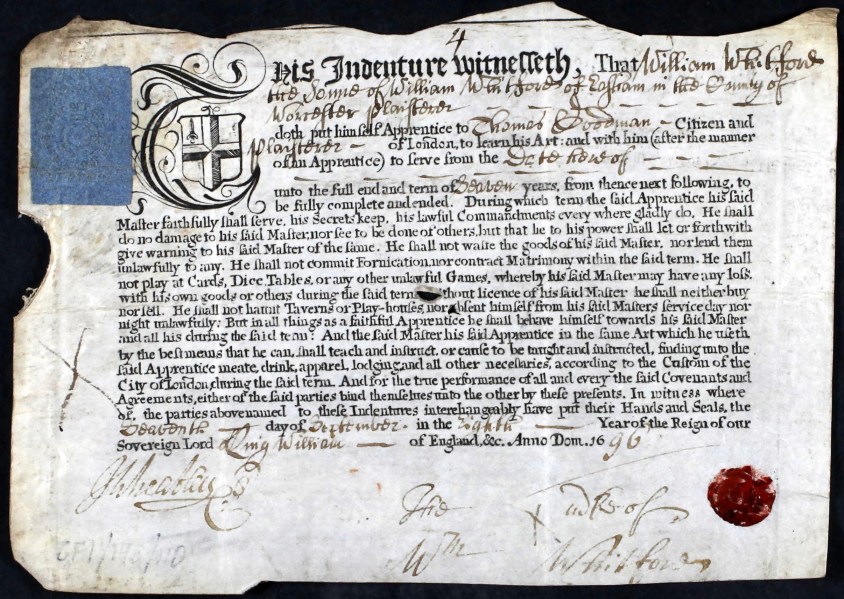 4
This Indenture witnesseth, That William Whitford
the Sonne of William Whitford of in the County of
Worcester Plaisterer
doth put himself Apprentice to Thomas Goodman Citizen and
Plaisterer of London, to learn his Art: and with him (after the manner
of an Apprentice) to serve from the Date hereof
unto the full end and term of Seaven years, from thence next following, to
be fully complete and ended. During which term the said Apprentice his said
Master faithfully shall serve, his Secrets keep, his lawful Commandments every where gladly do. He shall
do no damage to his said Master, nor see to be done of others, but that he to his power shall let or forthwith
give warning to his said Master of the same. He shall not waste the goods of his said Master, nor lend them
unlawfully to any. He shall not commit Fornication, nor contract Matrimony within the said term. He shall
not play at Cards, Dice, Tables, or any other unlawful Games, whereby his said Master may have any loss.
with his own goods or others during the said term without licence of his said Master he shall neither buy
nor sell. He shall not haunt Taverns or Play-houses, nor absent himself from his said Masters service day nor
night unlawfully: But in all things as a faithful Apprentice he shall behave himself towards his said Master
and all his during the said team: And the said Master his said Apprentice in the same Art which he useth
by the best means that he can, shall teach and instruct, or cause to be taught and instructed, finding unto the
said Apprentice meate, drink, apparel, lodging and all other necessaries, according to the Custom of the
City of London, during the said term. And for the true performance of all and every the said Covenants and
Agreements, either of the said parties bind themselves unto the other by these presents. In witness where
of, the parties abovenamed to these Indentures interchangeably have put their Hands and Seals, the
Seaventh day of September in the Eighth Year of the Reign of our
Sovereign Lord King William of England, &c. Anno Dom. 1696
The X marke of
Wm Whitford